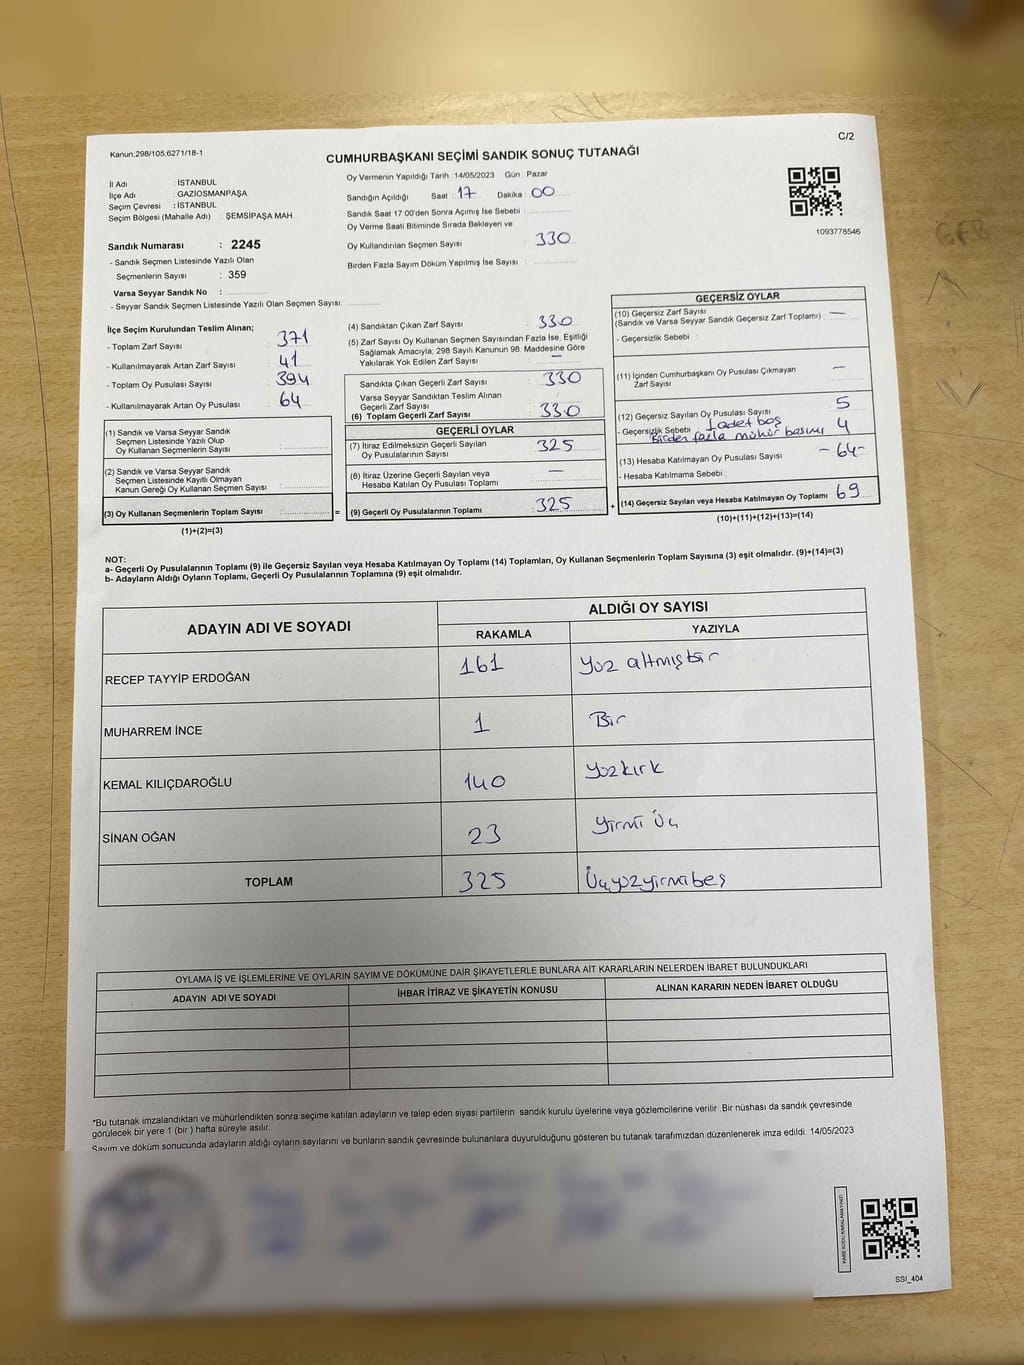 C/2
Kanun:298/105;6271/18-1
CUMHURBAŞKANI SEÇİMİ SANDIK SONUÇ TUTANAĞI
Oy Vermenin Yapıldığı Tarih : 14/05/2023 Gün : Pazar
İl Adı : İSTANBUL
İlçe Adı : GAZİOSMANPAŞA
Seçim Çevresi : İSTANBUL
Seçim Bölgesi (Mahalle Adı) : ŞEMSİPAŞA MAH.
Sandığın Açıldığı Saat 17 Dakika 00
Sandık Saat 17:00'den Sonra Açımış İse Sebebi :
Oy Verme Saati Bitiminde Sırada Bekleyen ve
Oy Kullandırılan Seçmen Sayısı : 330
Birden Fazla Sayım Döküm Yapılmış İse Sayısı :
1093778546
Sandık Numarası : 2245
- Sandık Seçmen Listesinde Yazılı Olan
Seçmenlerin Sayısı : 359
Varsa Seyyar Sandık No :
- Seyyar Sandık Seçmen Listesinde Yazılı Olan Seçmen Sayısı:
İlçe Seçim Kurulundan Teslim Alınan;
- Toplam Zarf Sayısı : 371
- Kullanılmayarak Artan Zarf Sayısı : 41
- Toplam Oy Pusulası Sayısı : 394
- Kullanılmayarak Artan Oy Pusulası : 64
(1) Sandık ve Varsa Seyyar Sandık
Seçmen Listesinde Yazılı Olup
Oy Kullanan Seçmenlerin Sayısı :
(2) Sandık ve Varsa Seyyar Sandık
Seçmen Listesinde Kayıtlı Olmayan
Kanun Gereği Oy Kullanan Seçmen Sayısı :
(3) Oy Kullanan Seçmenlerin Toplam Sayısı :
(1)+(2)=(3)
(4) Sandıktan Çıkan Zarf Sayısı : 330
(5) Zarf Sayısı Oy Kullanan Seçmen Sayısından Fazla İse, Eşitliği
Sağlamak Amacıyla; 298 Sayılı Kanunun 98. Maddesine Göre
Yakılarak Yok Edilen Zarf Sayısı : —
Sandıkta Çıkan Geçerli Zarf Sayısı : 330
Varsa Seyyar Sandıktan Teslim Alınan
Geçerli Zarf Sayısı :
(6) Toplam Geçerli Zarf Sayısı : 330
GEÇERLİ OYLAR
(7) İtiraz Edilmeksizin Geçerli Sayılan
Oy Pusulasının Sayısı : 325
(8) İtiraz Üzerine Geçerli Sayılan veya
Hesaba Katılan Oy Pusulası Toplamı : —
= (9) Geçerli Oy Pusulalarının Toplamı : 325
GEÇERSİZ OYLAR
(10) Geçersiz Zarf Sayısı
(Sandık ve Varsa Seyyar Sandık Geçersiz Zarf Toplamı) : —
- Geçersizlik Sebebi :
(11) İçinden Cumhurbaşkanı Oy Pusulası Çıkmayan
Zarf Sayısı : —
(12) Geçersiz Sayılan Oy Pusulası Sayısı : 5
- Geçersizlik Sebebi : 1 adet boş
Birden fazla mühür basımı 4
(13) Hesaba Katılmayan Oy Pusulası Sayısı : -64-
- Hesaba Katılmama Sebebi :
+ (14) Geçersiz Sayılan veya Hesaba Katılmayan Oy Toplamı : 69
(10)+(11)+(12)+(13)=(14)
NOT:
a- Geçerli Oy Pusulalarının Toplamı (9) ile Geçersiz Sayılan veya Hesaba Katılmayan Oy Toplamı (14) Toplamları, Oy Kullanan Seçmenlerin Toplam Sayısına (3) eşit olmalıdır. (9)+(14)=(3)
b- Adayların Aldığı Oyların Toplamı, Geçerli Oy Pusulalarının Toplamına (9) eşit olmalıdır.
ADAYIN ADI VE SOYADI ALDIĞI OY SAYISI
RAKAMLA YAZIYLA
RECEP TAYYİP ERDOĞAN 161 Yüz altmışbir
MUHARREM İNCE 1 Bir
KEMAL KILIÇDAROĞLU 140 Yüzkırk
SİNAN OĞAN 23 Yirmi Üç
TOPLAM 325 Üçyüzyirmibeş
OYLAMA İŞ VE İŞLEMLERİNE VE OYLARIN SAYIM VE DÖKÜMÜNE DAİR ŞİKAYETLERLE BUNLARA AİT KARARLARIN NELERDEN İBARET BULUNDUKLARI
ADAYIN ADI VE SOYADI İHBAR İTİRAZ VE ŞİKAYETİN KONUSU ALINAN KARARIN NEDEN İBARET OLDUĞU
*Bu tutanak imzalandıktan ve mühürlendikten sonra seçime katılan adayların ve talep eden siyasi partilerin sandık kurulu üyelerine veya gözlemcilerine verilir. Bir nüshası da sandık çevresinde
görülecek bir yere 1 (bir ) hafta süreyle asılır.
Sayım ve döküm sonucunda adayların aldığı oyların sayılarını ve bunların sandık çevresinde bulunanlara duyurulduğunu gösteren bu tutanak tarafımızdan düzenlenerek imza edildi. 14/05/2023
KARE KODU KARALAMAYINIZ!
SSI_404